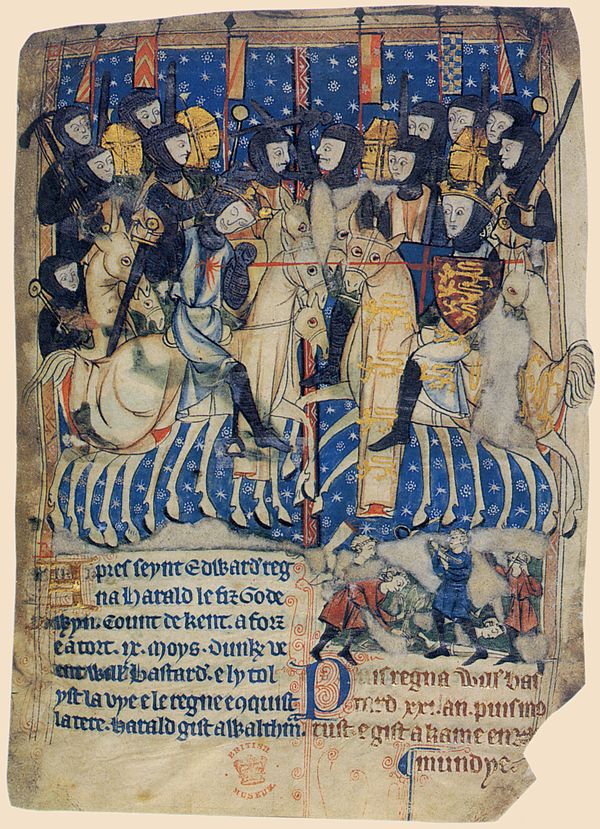 Apres seynt Edward reg
na Harald le fiz Gode
Wyn. Count de kent. a forz
e a tort. ix. moys. dunk ve
ent Will bastard. e ly tol
yst la vye e le regne e oquist
la tere. Harald gist a Walthm.
Puis regna Will bas
tard xxi. an. puis mo
rust. e gist a kame en
mundye
BRITISH
MUSEUM